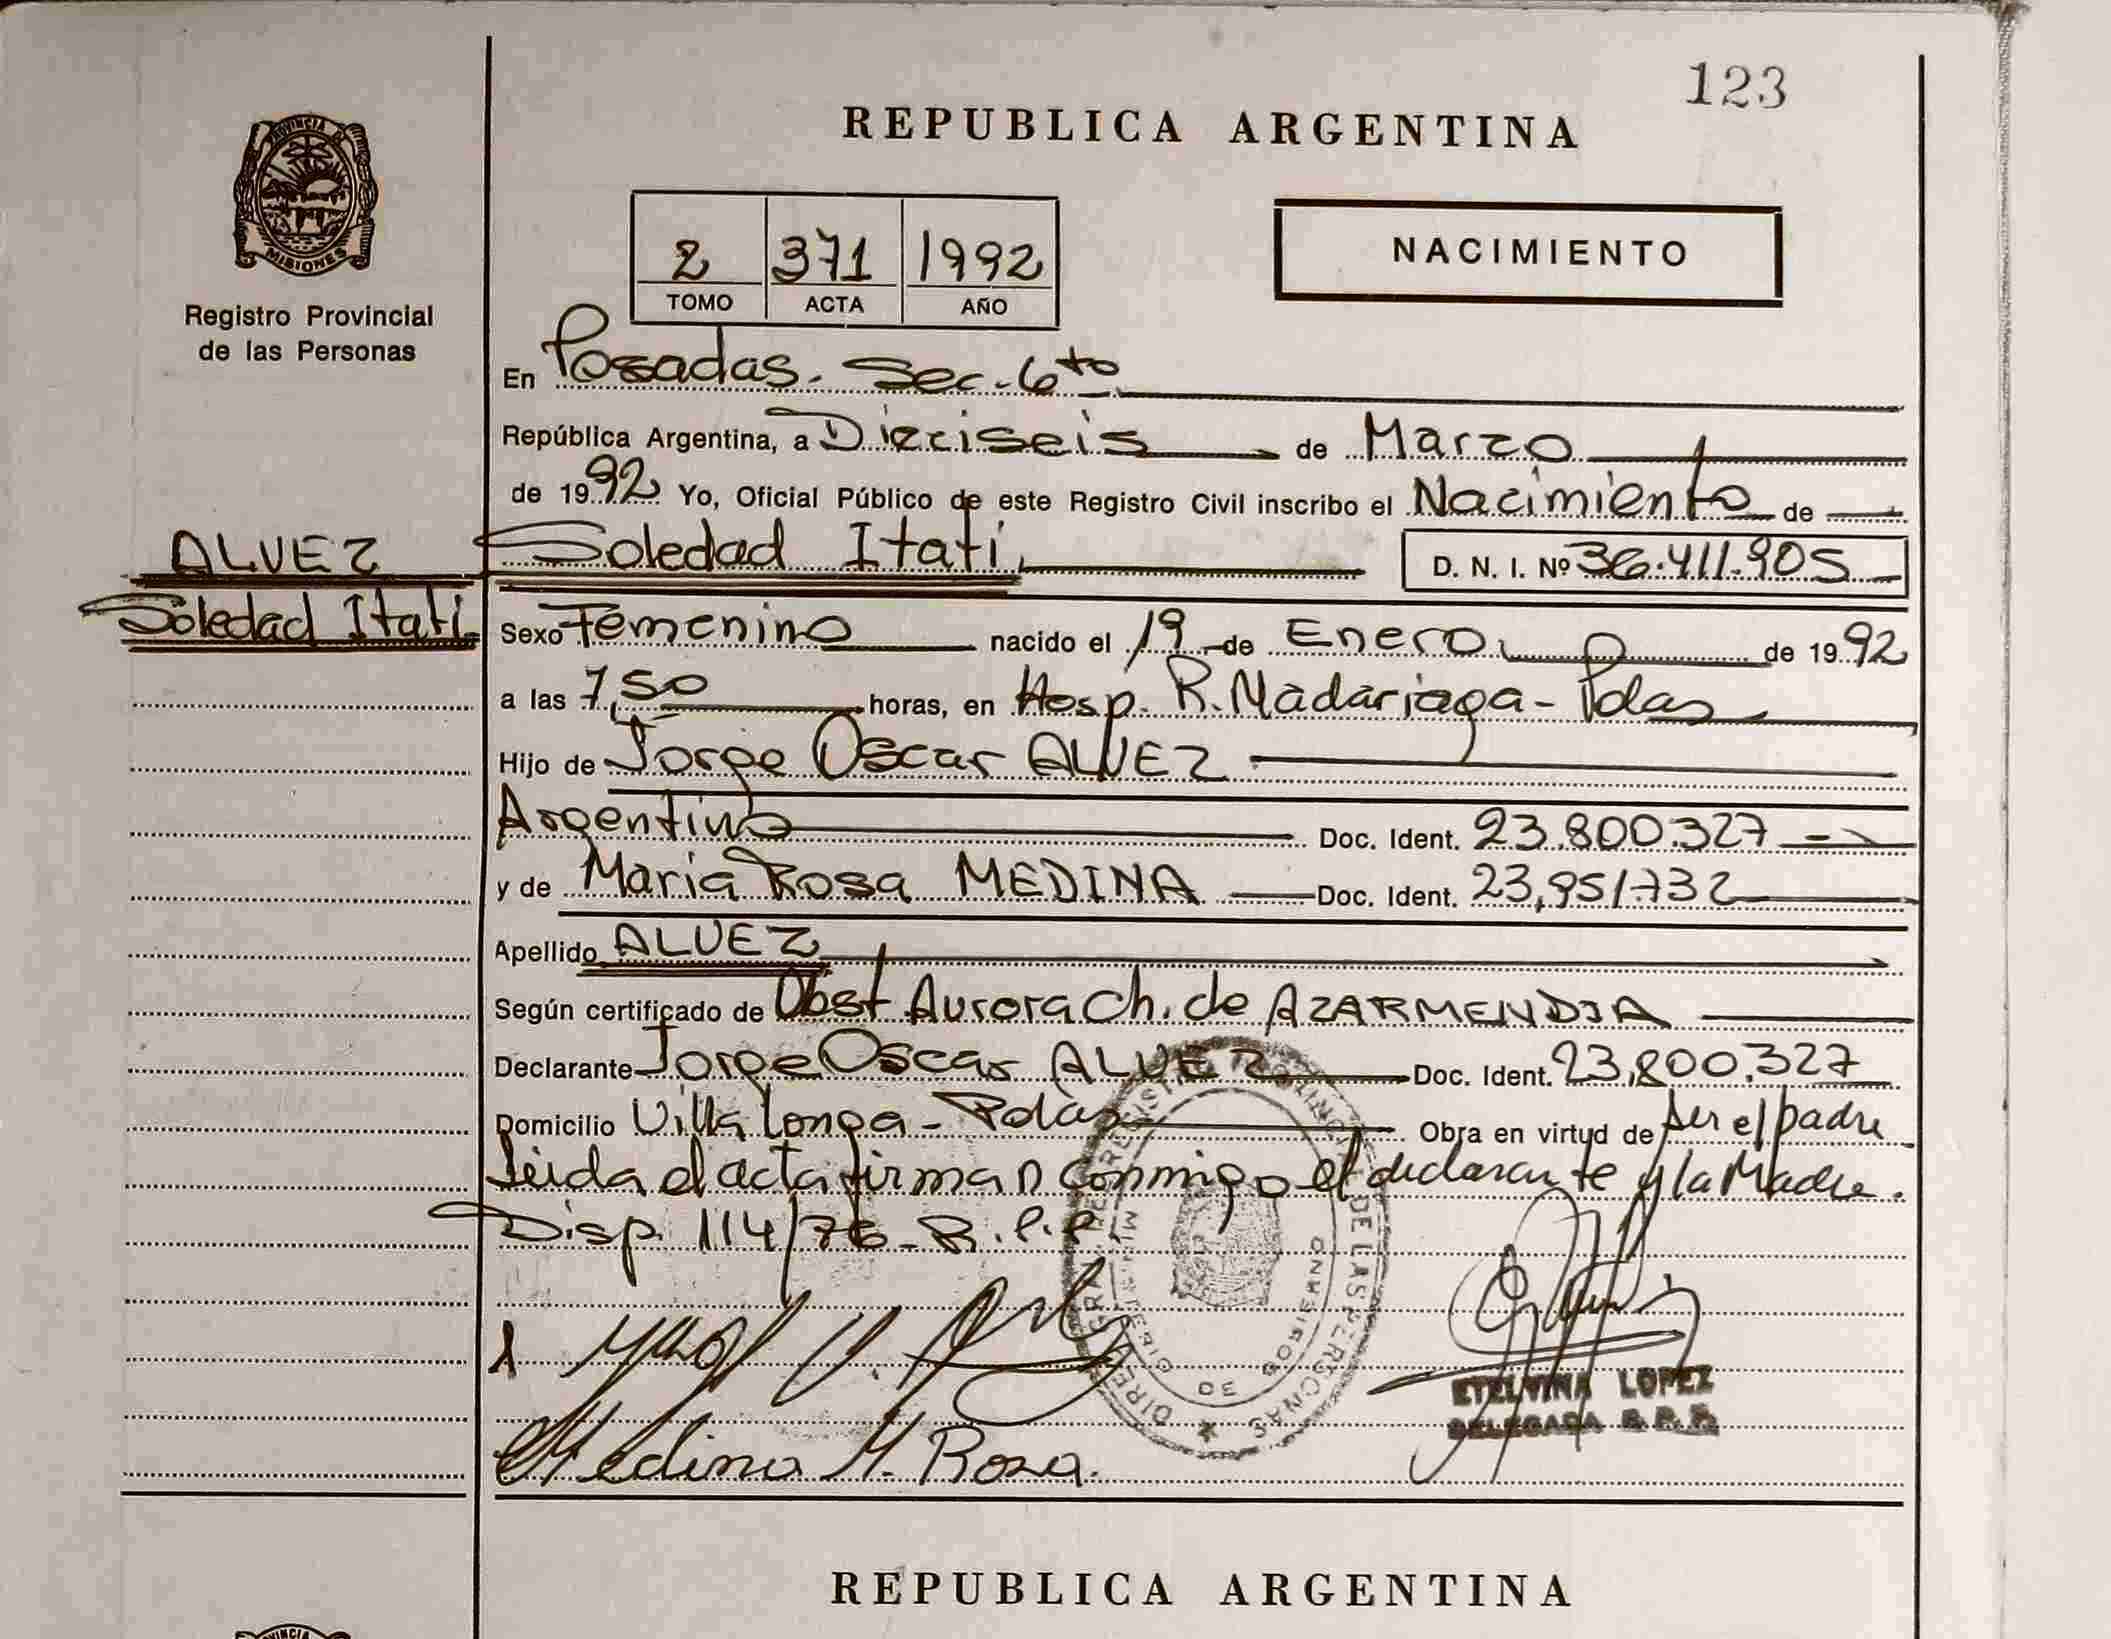 123
REPUBLICA ARGENTINA
PROVINCIA DE
MISIONES
Registro Provincial
de las Personas
2 371 1992
TOMO ACTA AÑO
NACIMIENTO
En Posadas. Sec. 6to
República Argentina, a Dieciseis de Marzo
de 1992 Yo, Oficial Público de este Registro Civil inscribo el Nacimiento de
ALVEZ
Soledad Itati
Soledad Itati, D. N. I. Nº 36.411.905
Sexo Femenino nacido el 19 de Enero de 1992
a las 7,50 horas, en Hosp. R. Madariaga - Pdas
Hijo de Jorge Oscar ALVEZ
Argentino Doc. Ident. 23.800.327
y de Maria Rosa MEDINA Doc. Ident. 23,951.732
Apellido ALVEZ
Según certificado de Obst Aurora Ch. de AZARMENDIA
Declarante Jorge Oscar ALVEZ Doc. Ident. 23,800.327
Domicilio Villa Longa - Pdas Obra en virtud de ser el padre
Leida el acta firman conmigo el declarante y la Madre.
Disp. 114/76 - R.P.P.
ETELVINA LOPEZ
DELEGADA R.P.P.
Medina M. Rosa.
REPUBLICA ARGENTINA